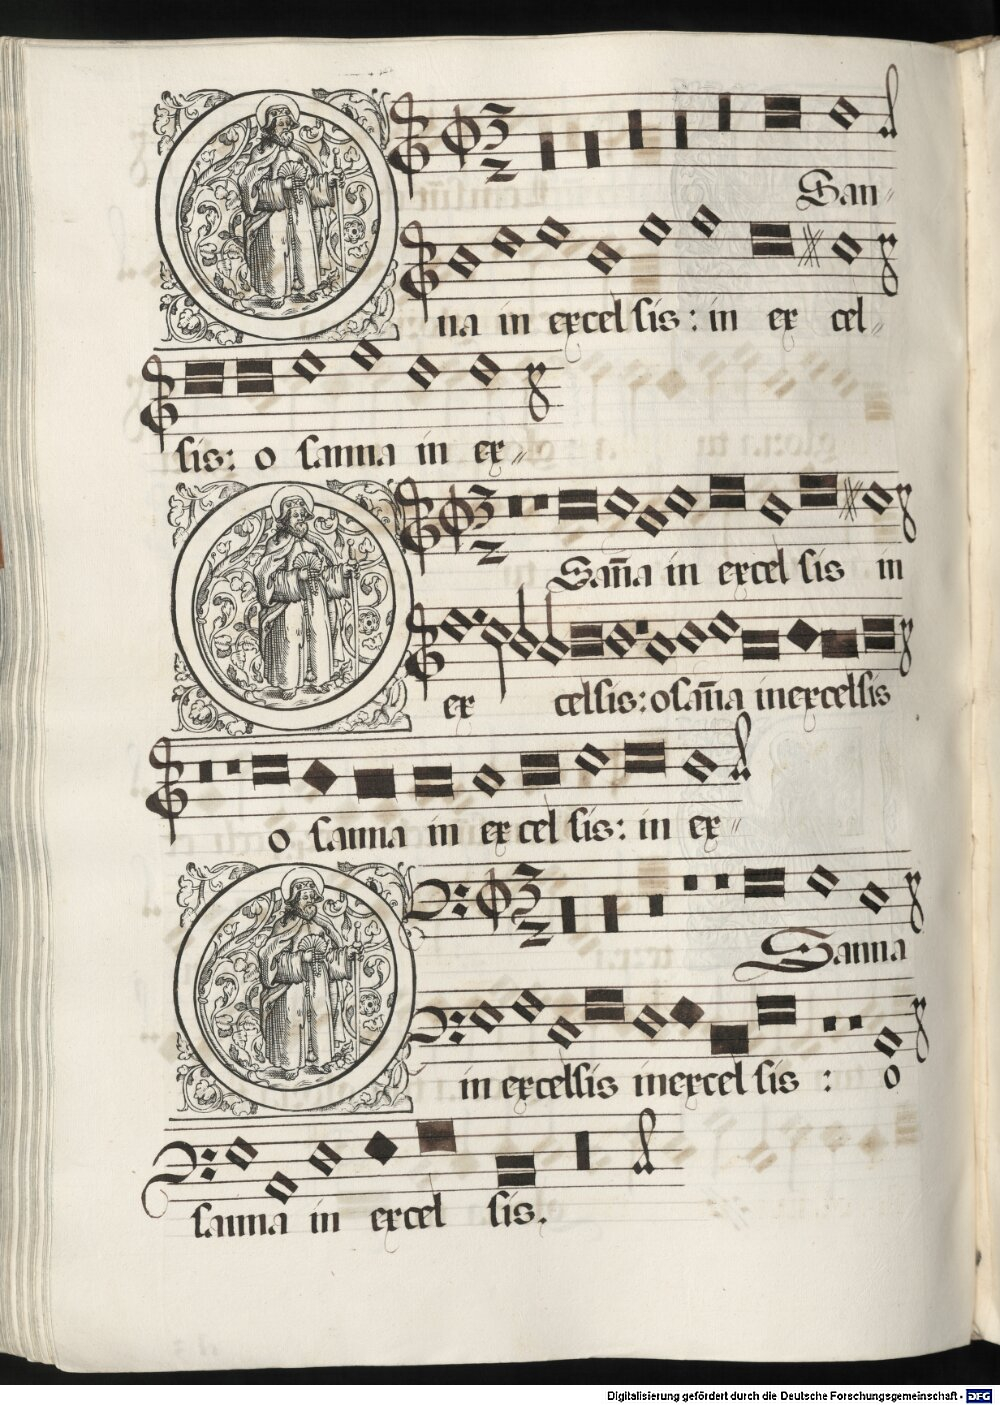 O San-
na in excelsis: in ex cel-
sis: o sanna in ex-
O San̄a in excelsis in
ex celsis: osan̄a in excelsis
o sanna in excelsis: in ex-
O Sanna
in excelsis in excelsis: o
sanna in excel sis.
Digitalisierung gefördert durch die Deutsche Forschungsgemeinschaft - DFG